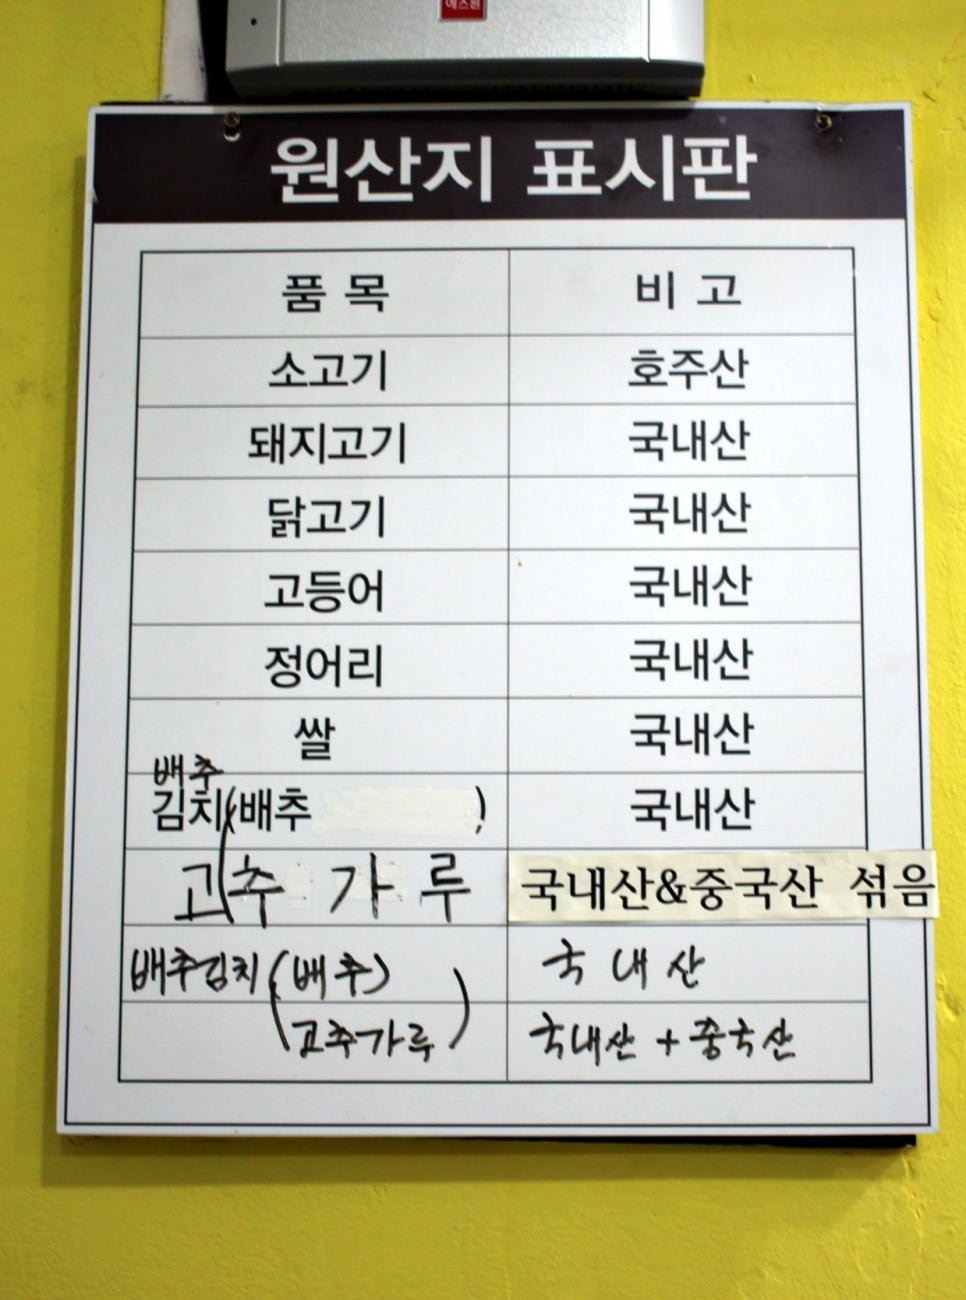 에스원
원산지 표시판
품 목 비 고
소고기 호주산
돼지고기 국내산
닭고기 국내산
고등어 국내산
정어리 국내산
쌀 국내산
배추
김치(배추 ) 국내산
고추 가루 국내산&중국산 섞음
배추김치 (배추) 국내산
(고추가루) 국내산 + 중국산